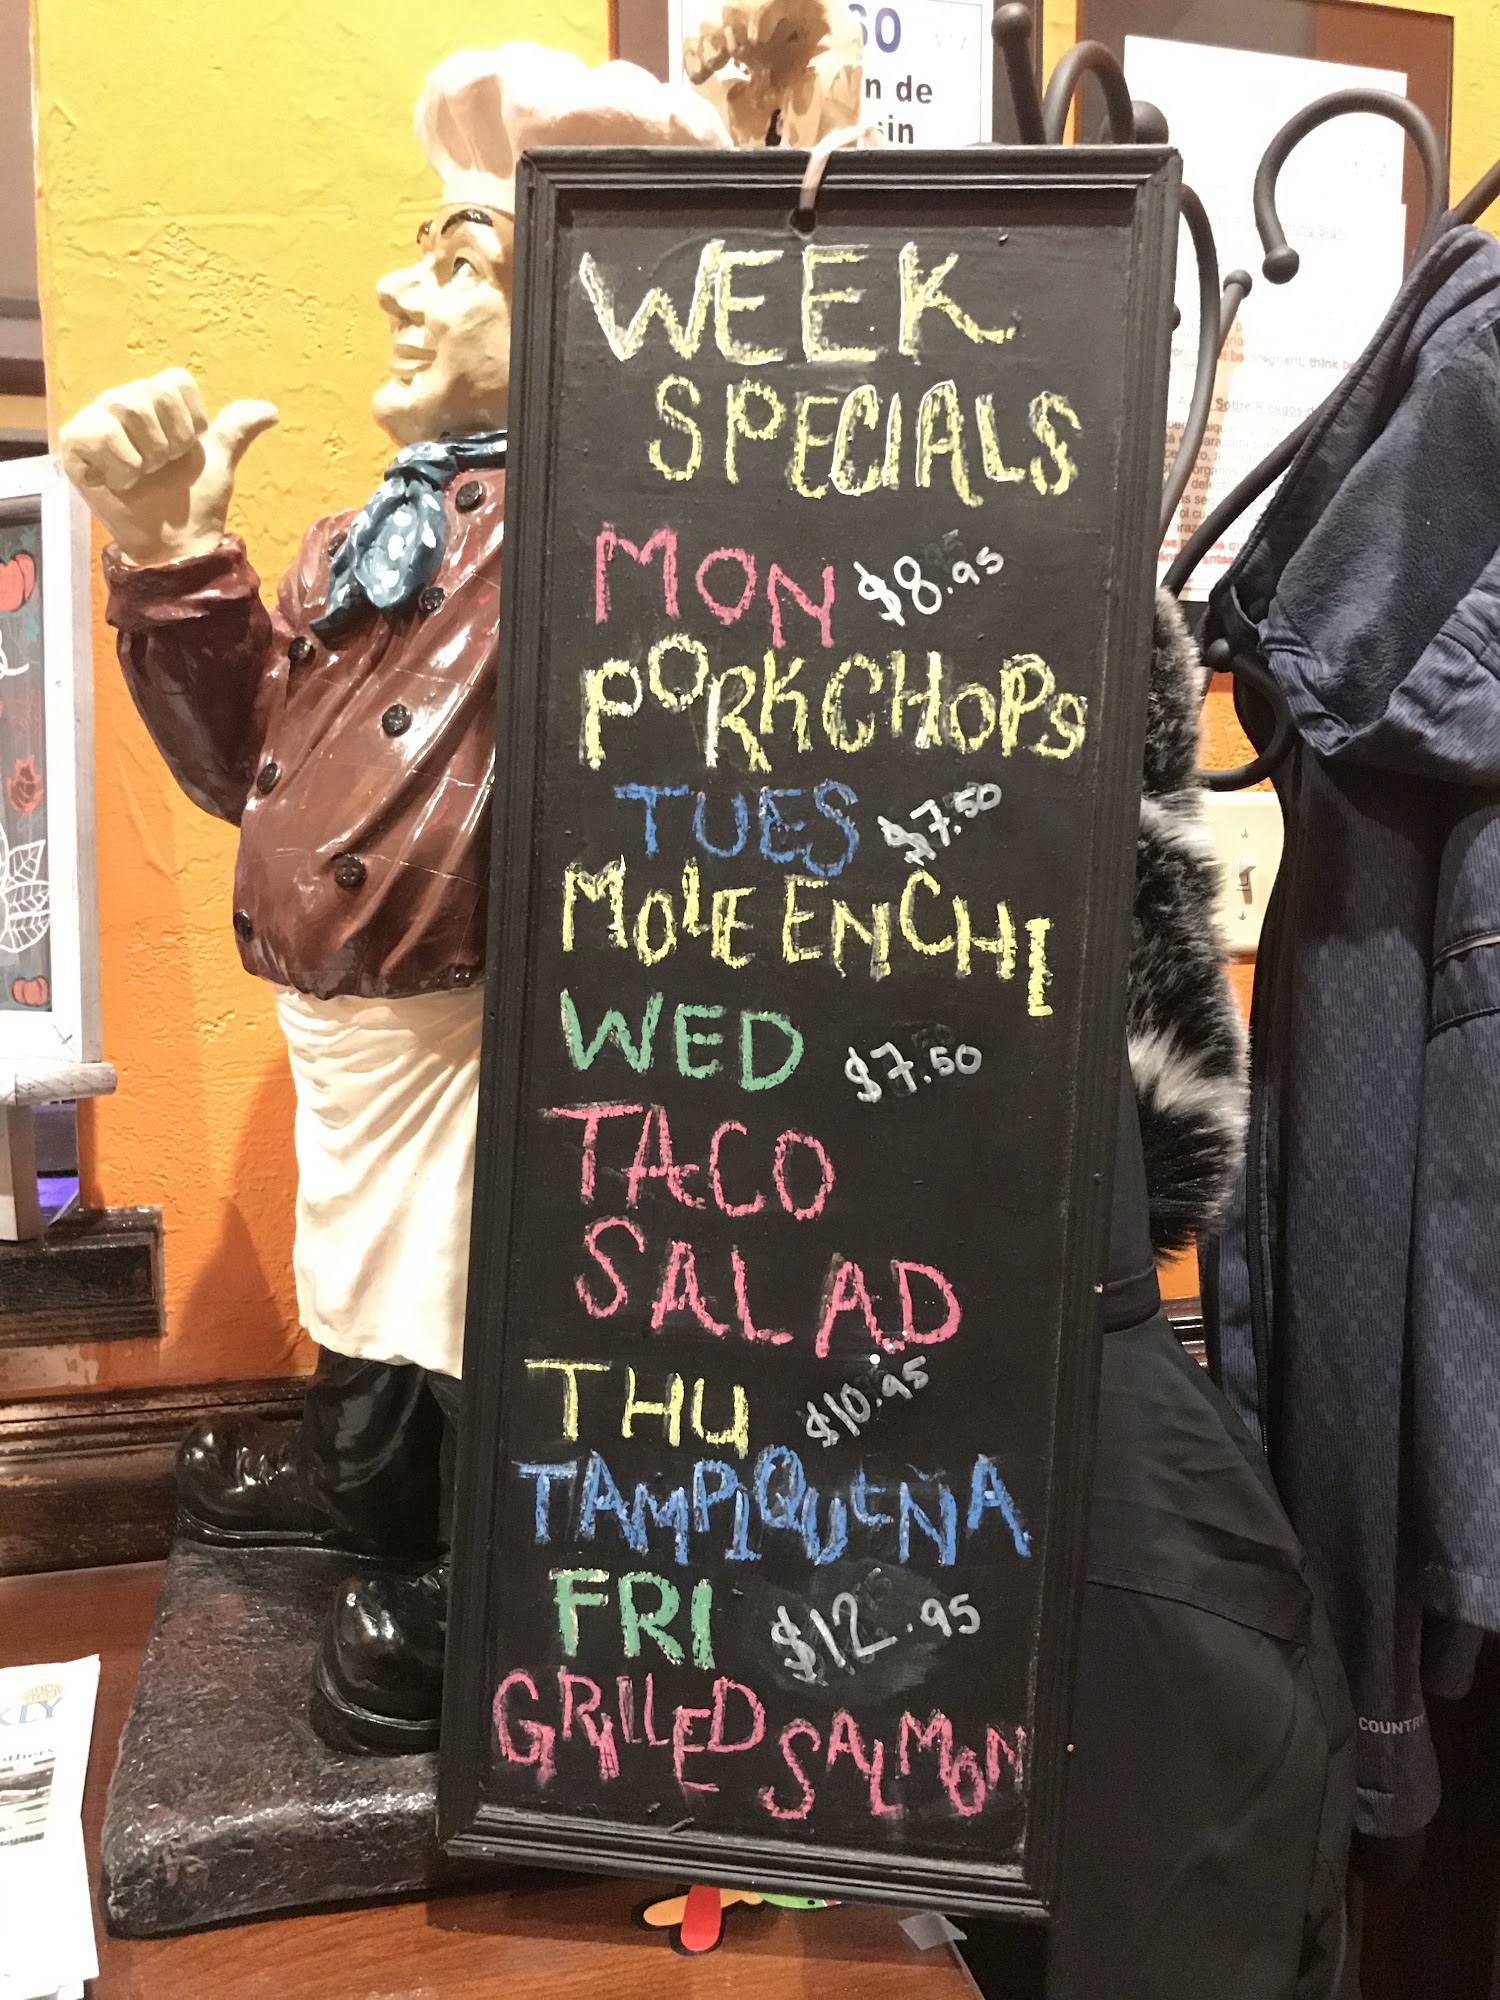 WEEK
SPECIALS
MON $8.95
PORKCHOPS
TUES $7.50
MOLE ENCHI
WED $7.50
TACO
SALAD
THU $10.95
TAMPIQUEÑA
FRI $12.95
GRILLED SALMON
n de
sin
Sobre Riesgos d
pregnant, think
COUNTRY
KLY
others